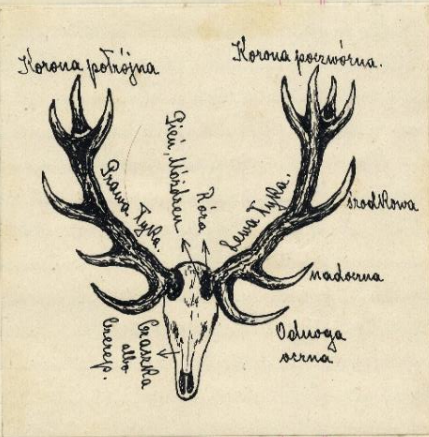 Korona potrójna
Korona poczwórna.
Pień,
Róża
Prawa Tyka.
Lewa Tyka.
Środkowa
nadoczna
Odnoga
oczna
Czaszka
albo
Czerep.